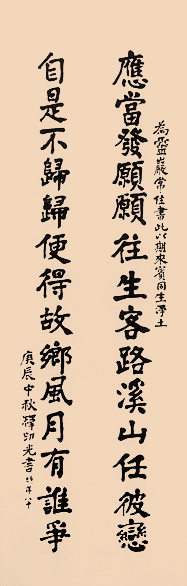 為靈巖常住書此以期來賓同生淨土
應當發願願往生客路溪山任彼戀
自是不歸歸便得故鄉風月有誰爭
庚辰中秋釋印光書時年八十